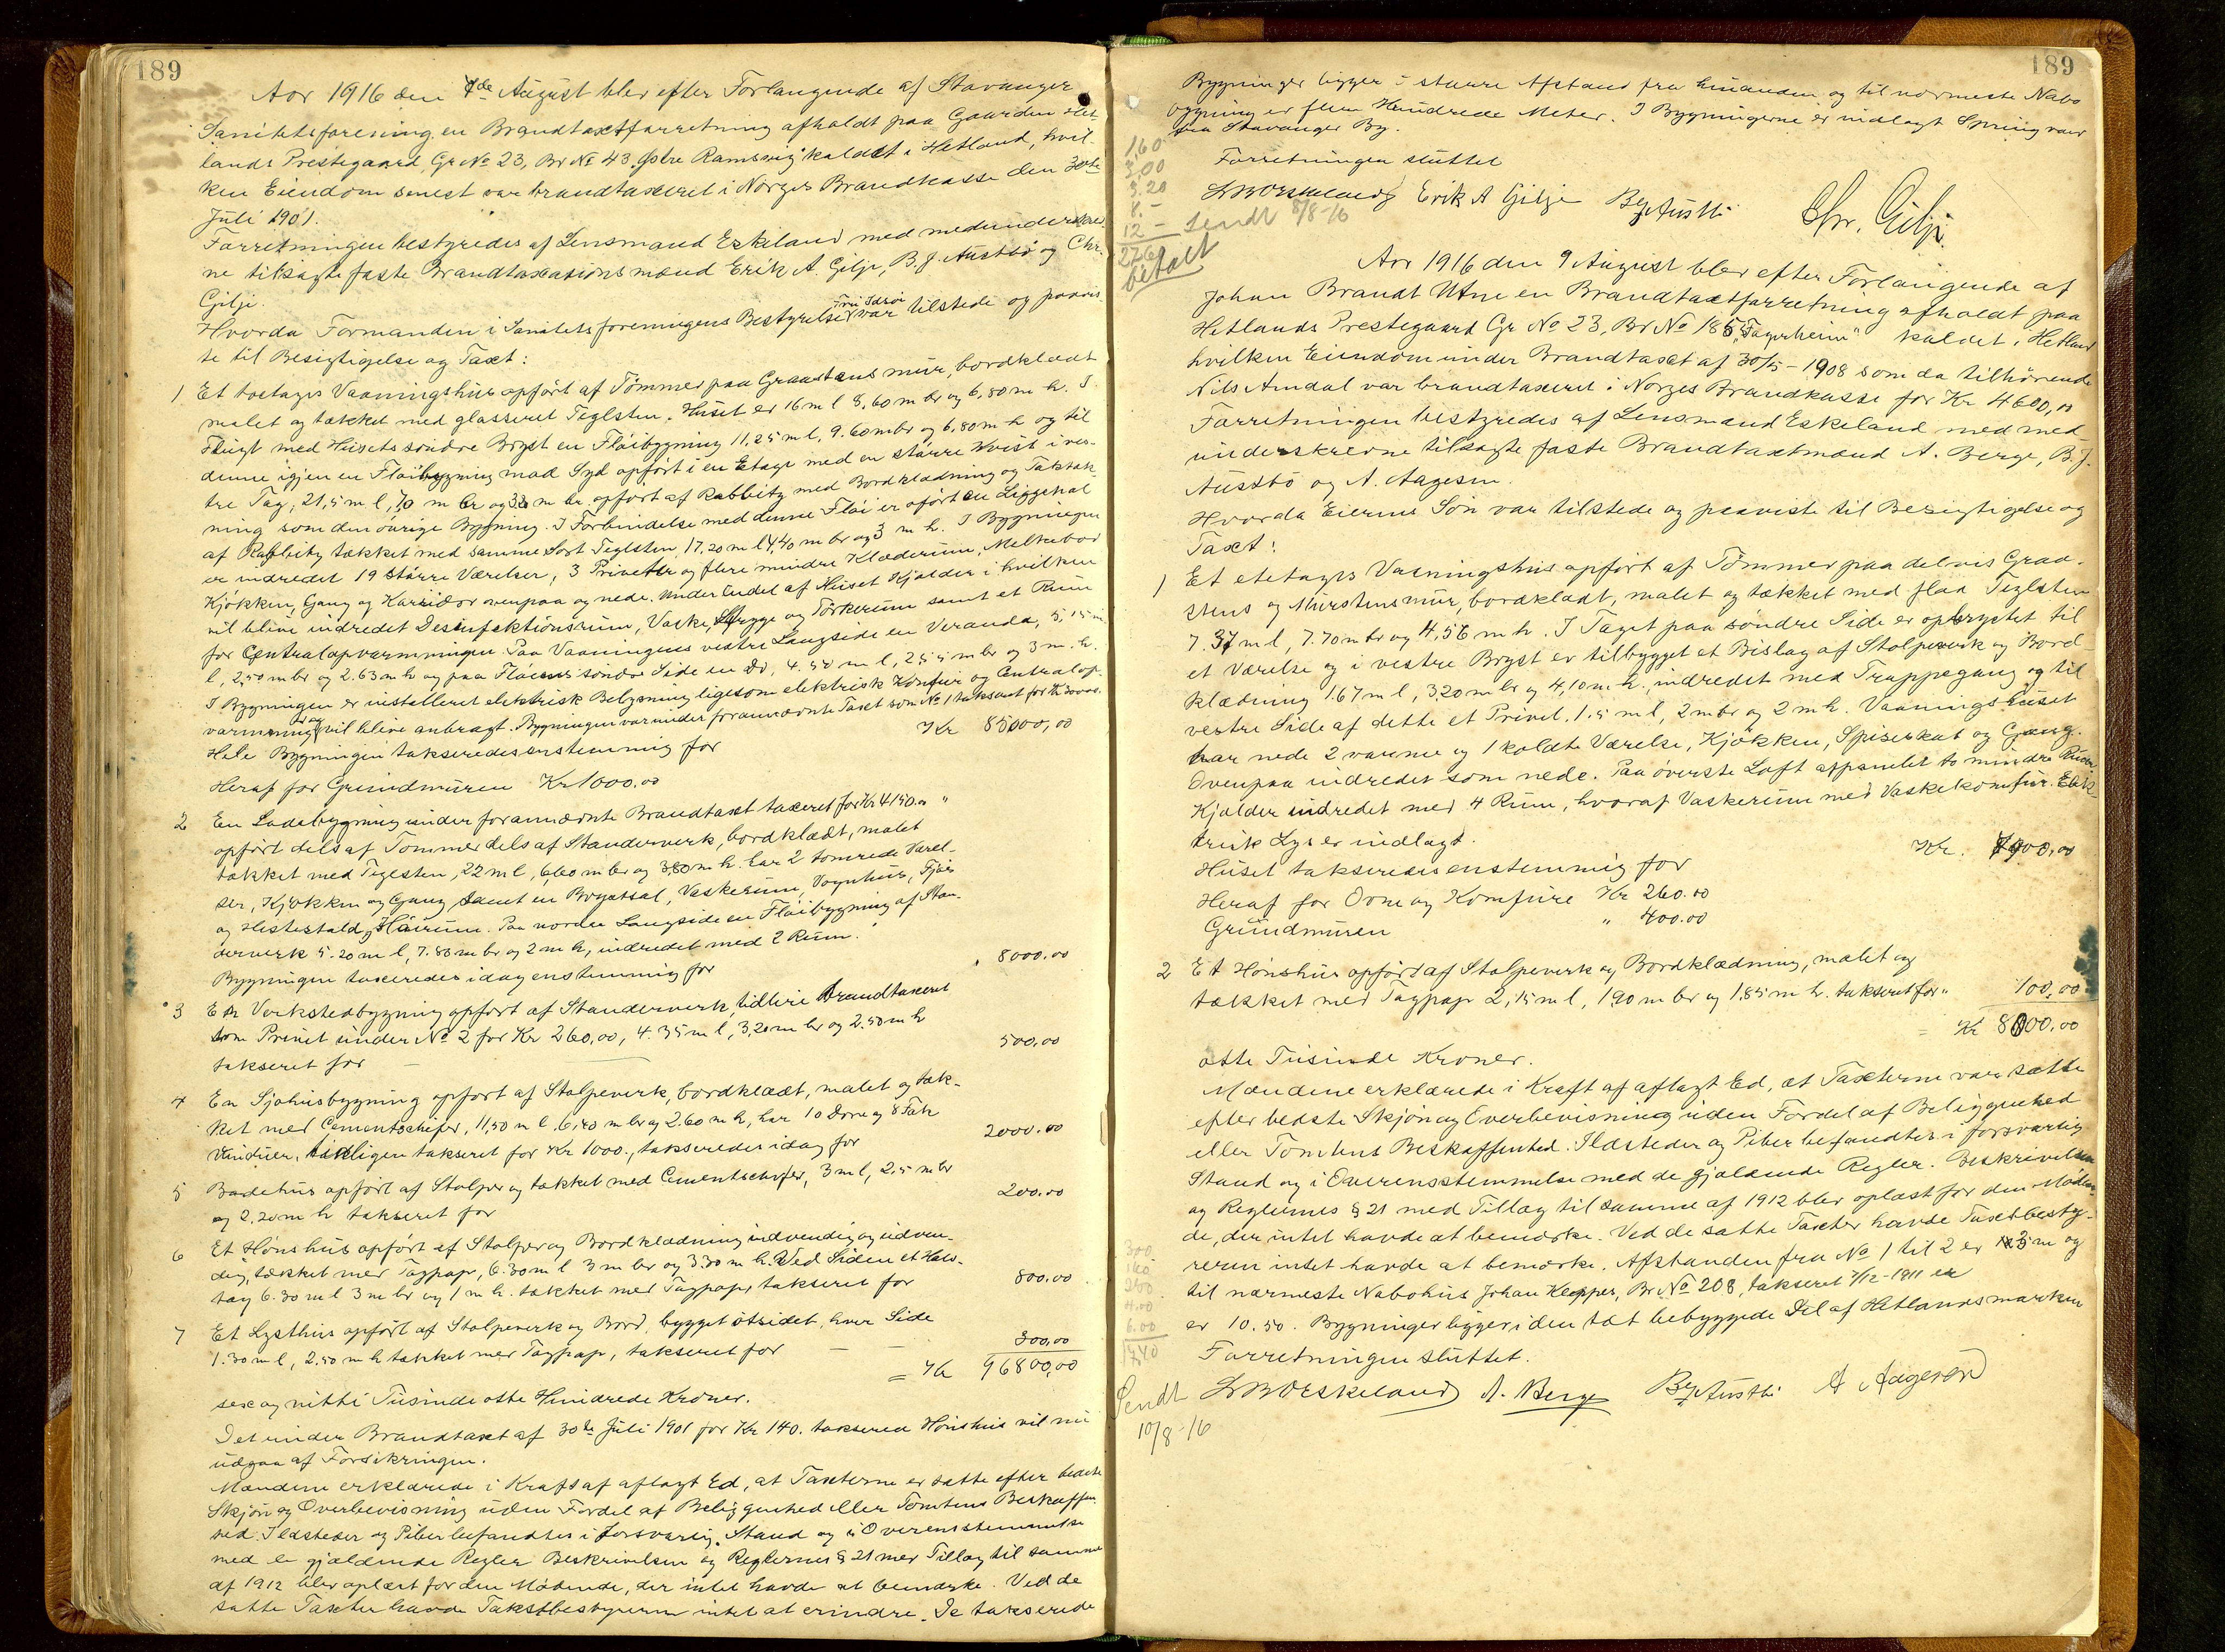 189
Aar 1916 den 7de August blev efter Forlangende af Stavanger
Sanitetsforening en Brandtaxtforretning afholdt paa Gaarden Het-
lands Prestegaard, Gr No 23, Br No 43 Østre Ramsvig kaldet i Hetland, hvil-
ken Eiendom senest var brandtaxeret i Norges Brandkasse den 30te
Juli 1901.
Forretningen bestyredes af Lensmand Eskeland med medunderskrev-
ne tilsagte faste Brandtaxasionsmænd Erik A. Gilje, B. J. Austbø og Chr.
Gilje.
Hvorda Formanden i Sanitetsforeningens Bestyrelse Fru Idsøe var tilstede og paavis
te til Besigtigelse og Taxt:
1 Et toetages Vaaningshus opført af Tømmer paa Graastens mur, bordklædt
malet og tækket med glasseret Teglsten. Huset er 16 m l 8,60 m br og 6,80 m h. I
Flugt med Husets søndre Bryst en Fløibygning 11,25 m l, 9.60 m br og 6,80 m h og til
denne igjen en Fløibygning mod Syd opført i en Etage med en større Kvist i ves-
tre Tag, 21,5 m l, 70 m br og 3.20 m h. opført af Rabbitz med Bordklædning og Taktæk
ning som den øvrige Bygning. I Forbindelse med denne Fløi er oført en Liggehal
af Rabbitz tækket med samme Sort Teglsten, 17,20 m l 4,40 m br og 3 m h. I Bygningen
er indredet 19 større Værelser, 3 Privetter og flere mindre Klæderum, Melkebod
Kjøkken, Gang og Karridor ovenpaa og nede. Under Endel af Huset Kjælder i hvilken
vil blive indredet Desinfektionsrum, Vaske, Stryge og Tørkerum samt et Rum
for Centralopvarmningen. Paa Vaaningens vestre Langside en Veranda, 5,15 m
l, 2,50 m br og 2.63 m h og paa Fløiens søndre Side en Do, 4.50 m l, 2,55 m br og 3 m. h.
I Bygningen er installeret elektrisk Belysning ligesom elektrisk Komfur og Centralop-
varmning vil blive anbragt. Bygningen var under forannævnte Taxt som No 1 taksert for
Hele Bygningen takseredes enstemmig for Kr 85000,00
Heraf for Grundmuren Kr 1000.00
2 En Ladebygning under forannævnte Brandtaxt taxeret for Kr 4150.00 "
opført dels af Tømmer dels af Standerverk, bordklædt, malet
tækket med Teglsten, 22 m l, 6,60 m br og 3,80 m h. har 2 tømrede Værel-
ser, Kjøkken og Gang samt en Brygatsal, Vaskerum, Vognhus, Fjøs
og Hestestald, Hørum. Paa nordre Langside en Fløibygning af Stan-
derverk 5.20 m l, 7.80 m br og 2 m h, indredet med 2 Rum.
Bygningen taxeredes idag enstemmig for 8000.00
3 En Verkstedbygning opført af Standerverk, tidlere brandtaxeret
som Privet under No 2 for Kr 260,00, 4.35 m l, 3,20 m br og 2.50 m h
takseret for 500,00
4 En Sjøhusbygning opført af Stolpeverk, bordklædt, malet og tæk-
ket med Cementschifer, 11,50 m l. 6,40 m br og 2.60 m h, har 10 Døre og 8 Fak
Vinduer, tidligere takseret for Kr 1000., takseredes idag for 2000.00
5 Badehus opført af Stolper og tækket med Cementschifer, 3 m l, 2,5 m br
og 2.20 m h takseret for 200.00
6 Et Hønshus opført af Stolper og Bordklædning indvendig og udven-
dig, tækket med Tagpap, 6.30 m l 3 m br og 3.30 m h. Ved Siden et Halv-
tag 6.30 m l 3 m br og 1 m h. tækket med Tagpap, takseret for 800.00
7 Et Lysthus opført af Stolpeverk og Bord, bygget ottsidet, hver Side
1.30 m l, 2.50 m h tækket med Tagpap, takseret for 300,00
= Kr 96800,00
sex og nitti Tusinde otte Hundrede Kroner.
Det under Brandtaxt af 30te Juli 1901 for Kr 140. takserede Hønshus vil nu
udgaa af Forsikringen.
Mændene erklærede i Kraft af aflagt Ed, at Taxterne er satte efter bedste
Skjøn og Overbevisning uden Fordel af Beliggenhed eller Tomtens Beskaffen
hed. Ildsteder og Piber befandtes i forsvarlig Stand og i Overensstemmelse
med de gjældende Regler. Beskrivelsen og Reglernes § 21 med Tillæg til samme
af 1912 blev oplæst for den Mødende, der intet havde at bemærke. Ved de
satte Taxter havde Takstbestyreren intet at erindre. De takserede
189
Bygninger ligger i større Afstand fra hinanden og til nærmeste Nabo
bygning er flere Hundrede Meter. I Bygningerne er indlagt Springvand
fra Stavanger By.
Forretningen sluttet
Eskeland Erik A Gilje B J Austbø Chr. Gilje
1,60
3,00
3.20
8.-
12 -
27.60
Sendt 8/8-16
betalt
Aar 1916 den 9 August blev efter Forlangende af
Johan Brandt Utne en Brandtaxtforretning afholdt paa
Hetlands Prestegaard Gr No 23, Br No 185 "Fagerheim" kaldet i Hetland
hvilken Eiendom under Brandtaxt af 30/5-1908 som da tilhørende
Nils Amdal var brandtaxeret i Norges Brandkasse for Kr 4600,00
Forretningen bestyredes af Lensmand Eskeland med med-
underskrevne tilsagte faste Brandtaxtmænd A. Berge, B. J.
Austbø og A. Aagesen.
Hvorda Eierens Søn var tilstede og paaviste til Besigtigelse og
Taxt:
1 Et etetages Vaaningshus opført af Tømmer paa delvis Graa-
stens og Murstensmur, bordklædt, malet og tækket med flaa Teglsten
7.37 m l, 7.70 m br og 4,56 m h. I Taget paa søndre Side er opbrystet til
et Værelse og i vestre Bryst er tilbygget et Bislag af Stolpeverk og Bord
klædning 1.67 m l, 3.20 m br og 4,10 m h., indredet med Trappegang og til
vestre Side af dette et Privet, 1.5 m l, 2 m br og 2 m h. Vaaningshuset
har nede 2 varme og 1 koldte Værelse, Kjøkken, Spiseskab og Gang.
Ovenpaa indredet som nede. Paa øverste Loft afpanelet to mindre Rum
Kjælder indredet med 4 Rum, hvoraf Vaskerum med Vaskekomfur. Elek-
trisk Lys er indlagt.
Huset takseredes enstemmig for Kr. 7900,00
Heraf for Ovne og Komfure Kr 260.00
Grundmuren " 400.00
2 Et Hønshus opført af Stolpeverk og Bordklædning, malet og
tækket med Tagpap 2,15 m l, 1,90 m br og 1,85 m h. takseret for " 100,00
= Kr 8000,00
otte Tusinde Kroner.
Mændene erklærede i Kraft af aflagt Ed, at Taxterne var satte
efter bedste Skjøn og Overbevisning uden Fordel af Beliggenhed
eller Tomtens Beskaffenhed. Ildsteder og Piber befandtes i forsvarlig
Stand og i Overensstemmelse med de gjældende Regler. Beskrivelsen
og Reglernes § 21 med Tillæg til samme af 1912 blev oplæst for den Møden-
de, der intet havde at bemærke. Ved de satte Taxter havde Taxtbesty-
reren intet havde at bemærke. Afstanden fra No 1 til 2 er 3 m og
til nærmeste Nabohus Johan Klepper, Br No 208, takseret 7/12-1911 er
er 10.50. Bygninger ligger i den tæt bebyggede Del af Hetlandsmarken
Forretningen sluttet.
Eskeland A. Berge B J Austbø A Aagesen
300
160
250
4.00
6.00
17,40
Sendt
10/8-16